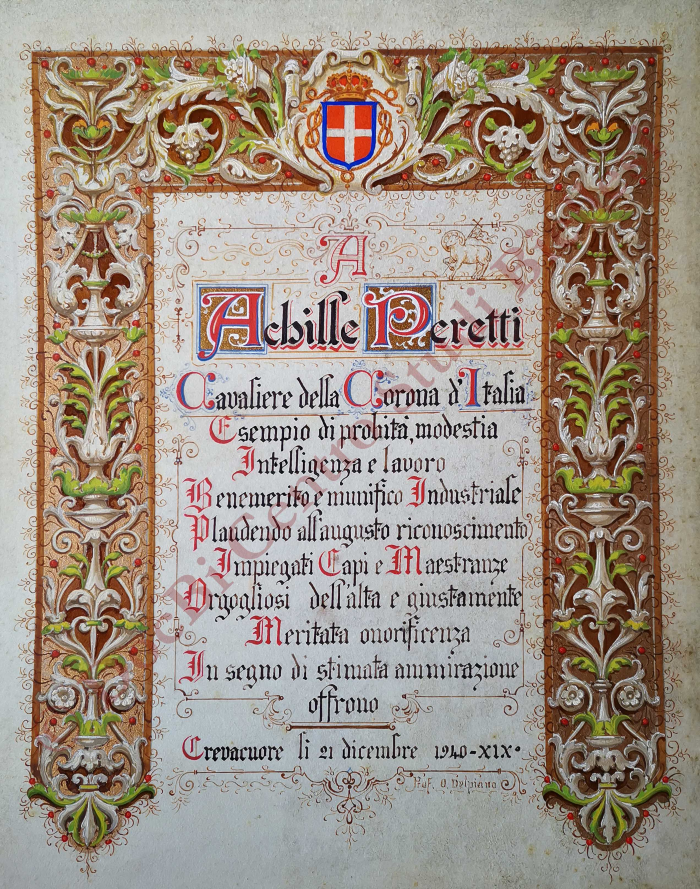 A
Achille Peretti
Cavaliere della Corona d'Italia
Esempio di probità, modestia
Intelligenza e lavoro
Benemerito e munifico Industriale
Plaudendo all'augusto riconoscimento
Impiegati Capi e Maestranze
Orgogliosi dell'alta e giustamente
Meritata onorificenza
In segno di stimata ammirazione
offrono
Crevacuore li 21 dicembre 1940-XIX·
Prof. O. Delpiano
DocBi Centro Studi Bi